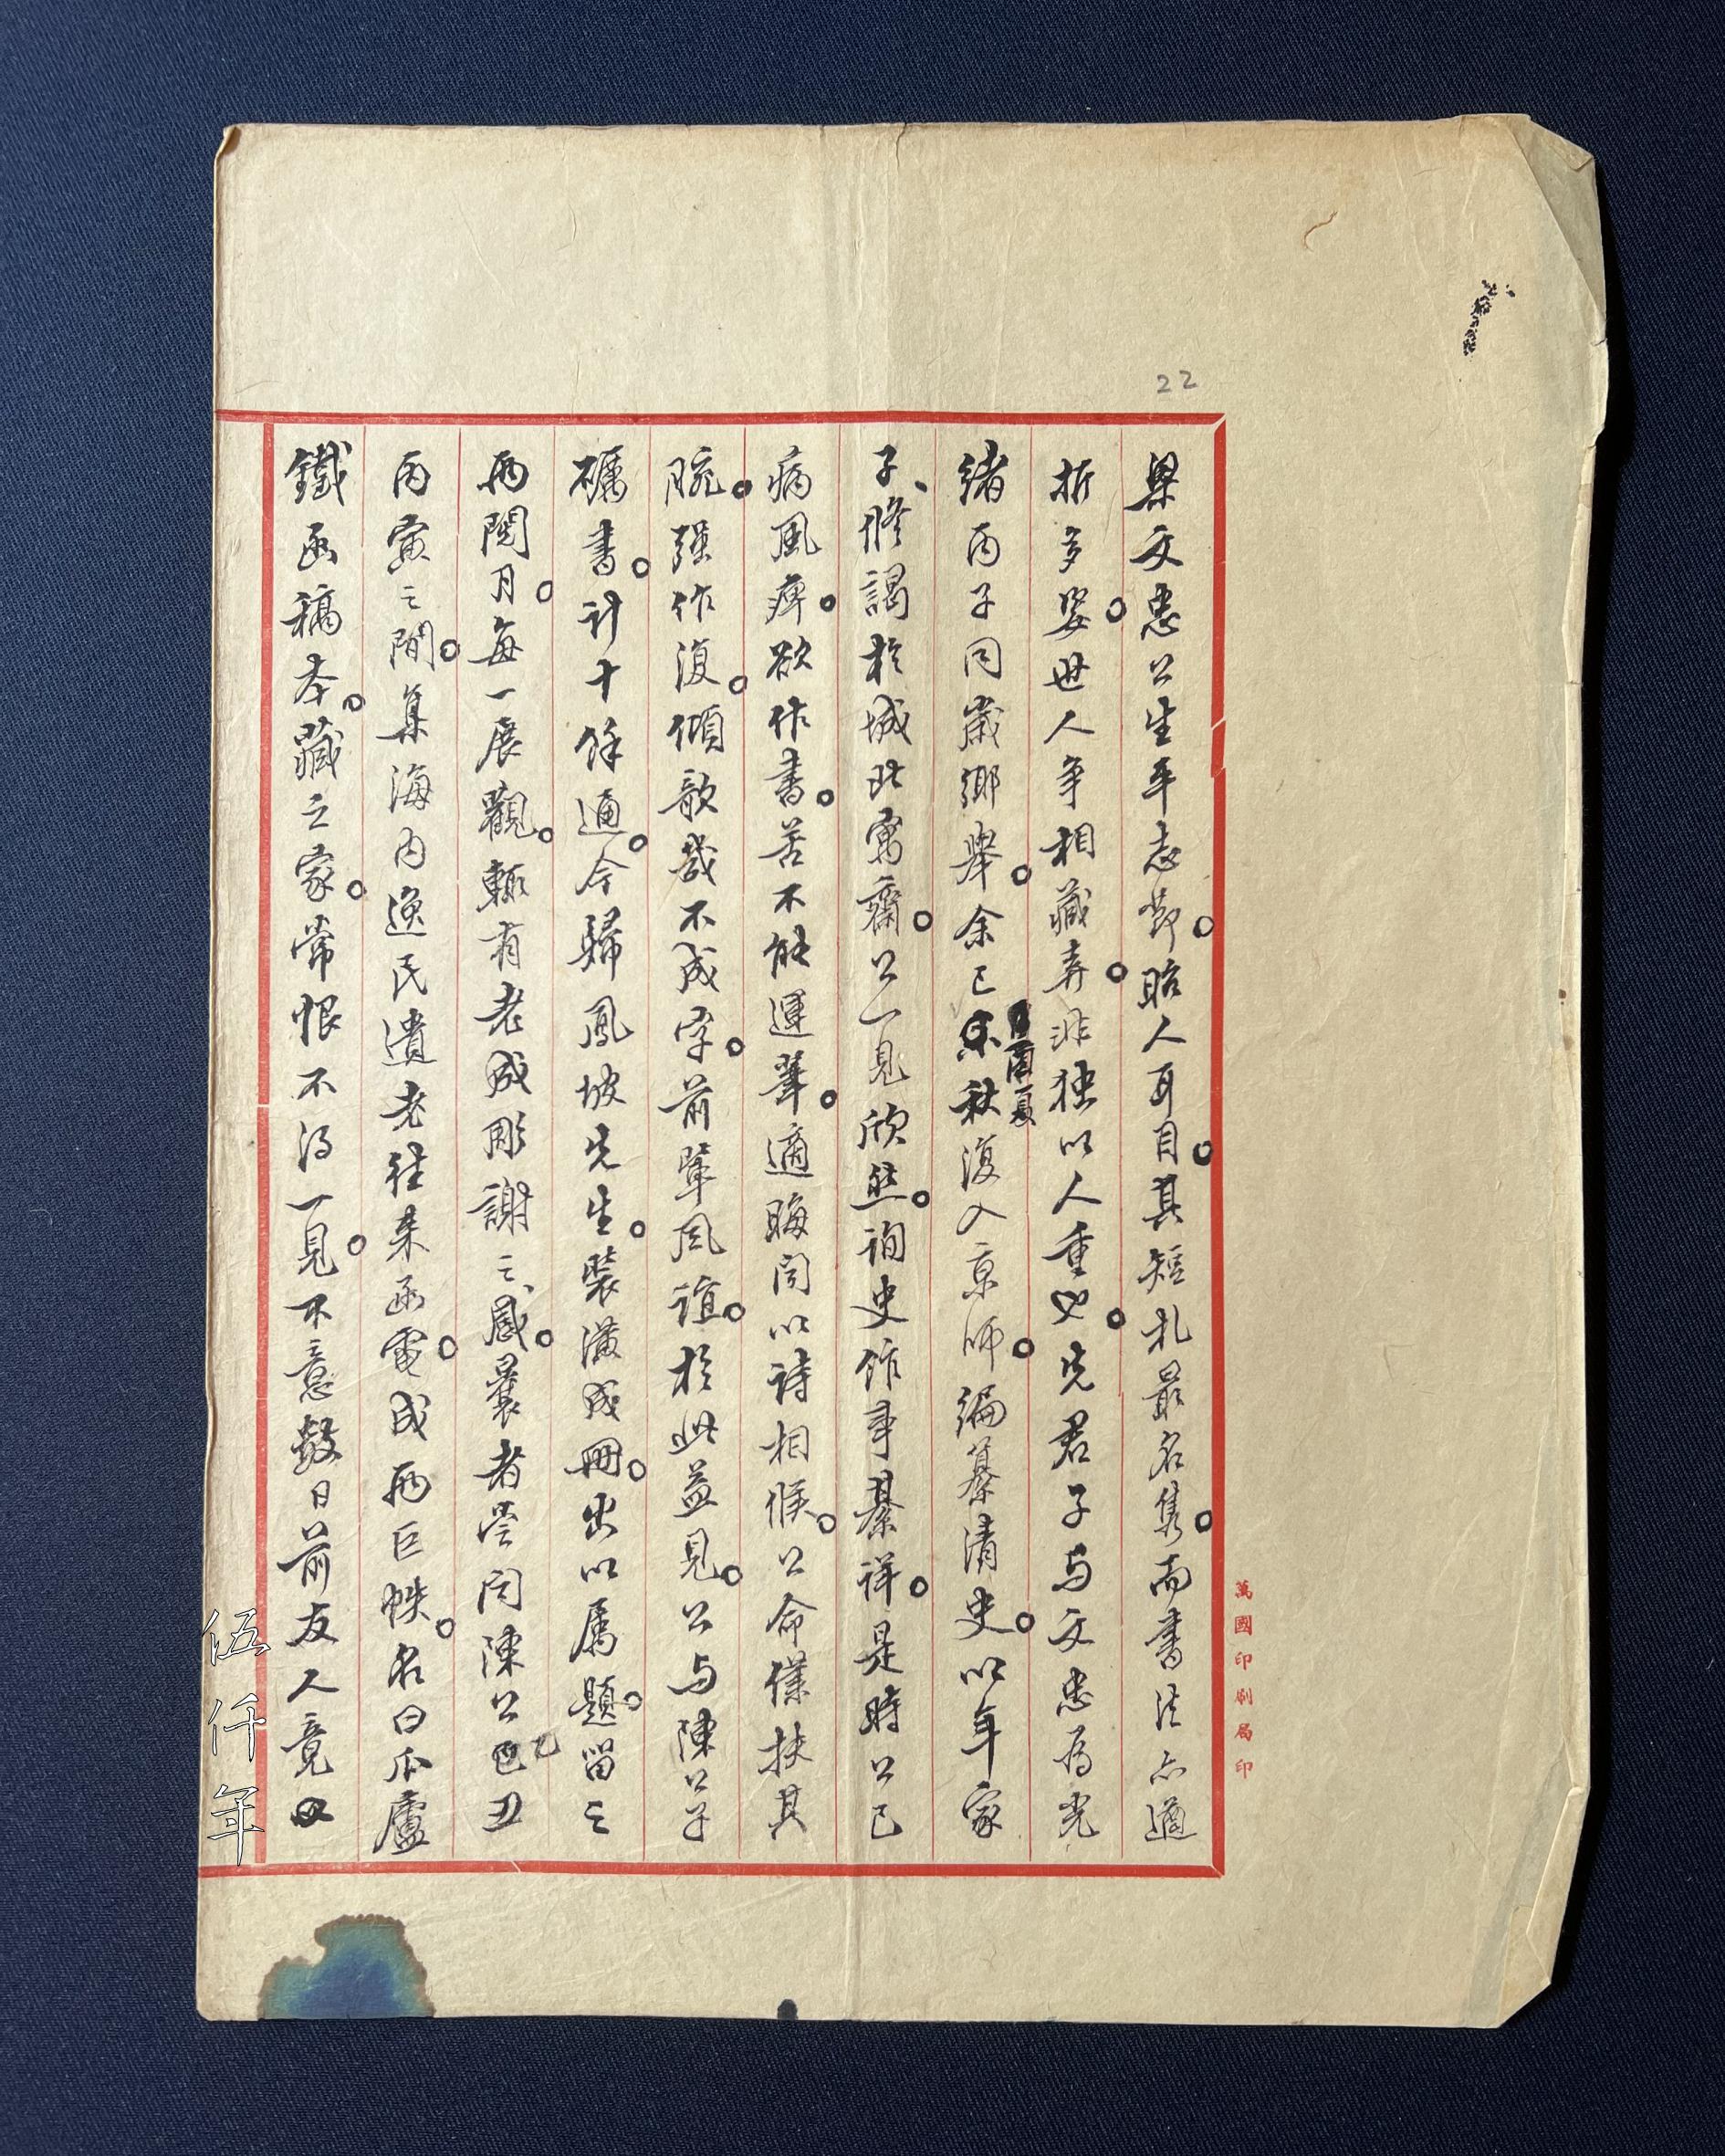 22
梁文忠公生平志節。昭人耳目。其短札最名雋。而書法亦遒
折多姿。世人爭相藏弆。非独以人重也。先君子与文忠為光
緒丙子同歲鄉舉。余己未秋復入京師。編纂清史。以年家
酉夏
子、修謁於城北寓齋。公一見欣然。詢史館事綦詳。是時公已
病風痺。欲作書。苦不能運筆。適晦聞以詩相候。公命僕扶其
腕。强作復。傾欹幾不成字。前輩風誼。於此益見。公与陳公子
礪書。計十餘通。今歸鳳坡先生。裝潢成冊。出以属題。留之
兩閱月。每一展觀。輒有老成彫謝之、感。曩者嘗聞陳公乙丑
丙寅之間。集海内逸民遺老往来函電。成兩巨帙。名曰瓜廬
鐵函稿本。藏之家。常恨不得一見。不意數日前友人竟以
萬國印刷局印
伍仟年